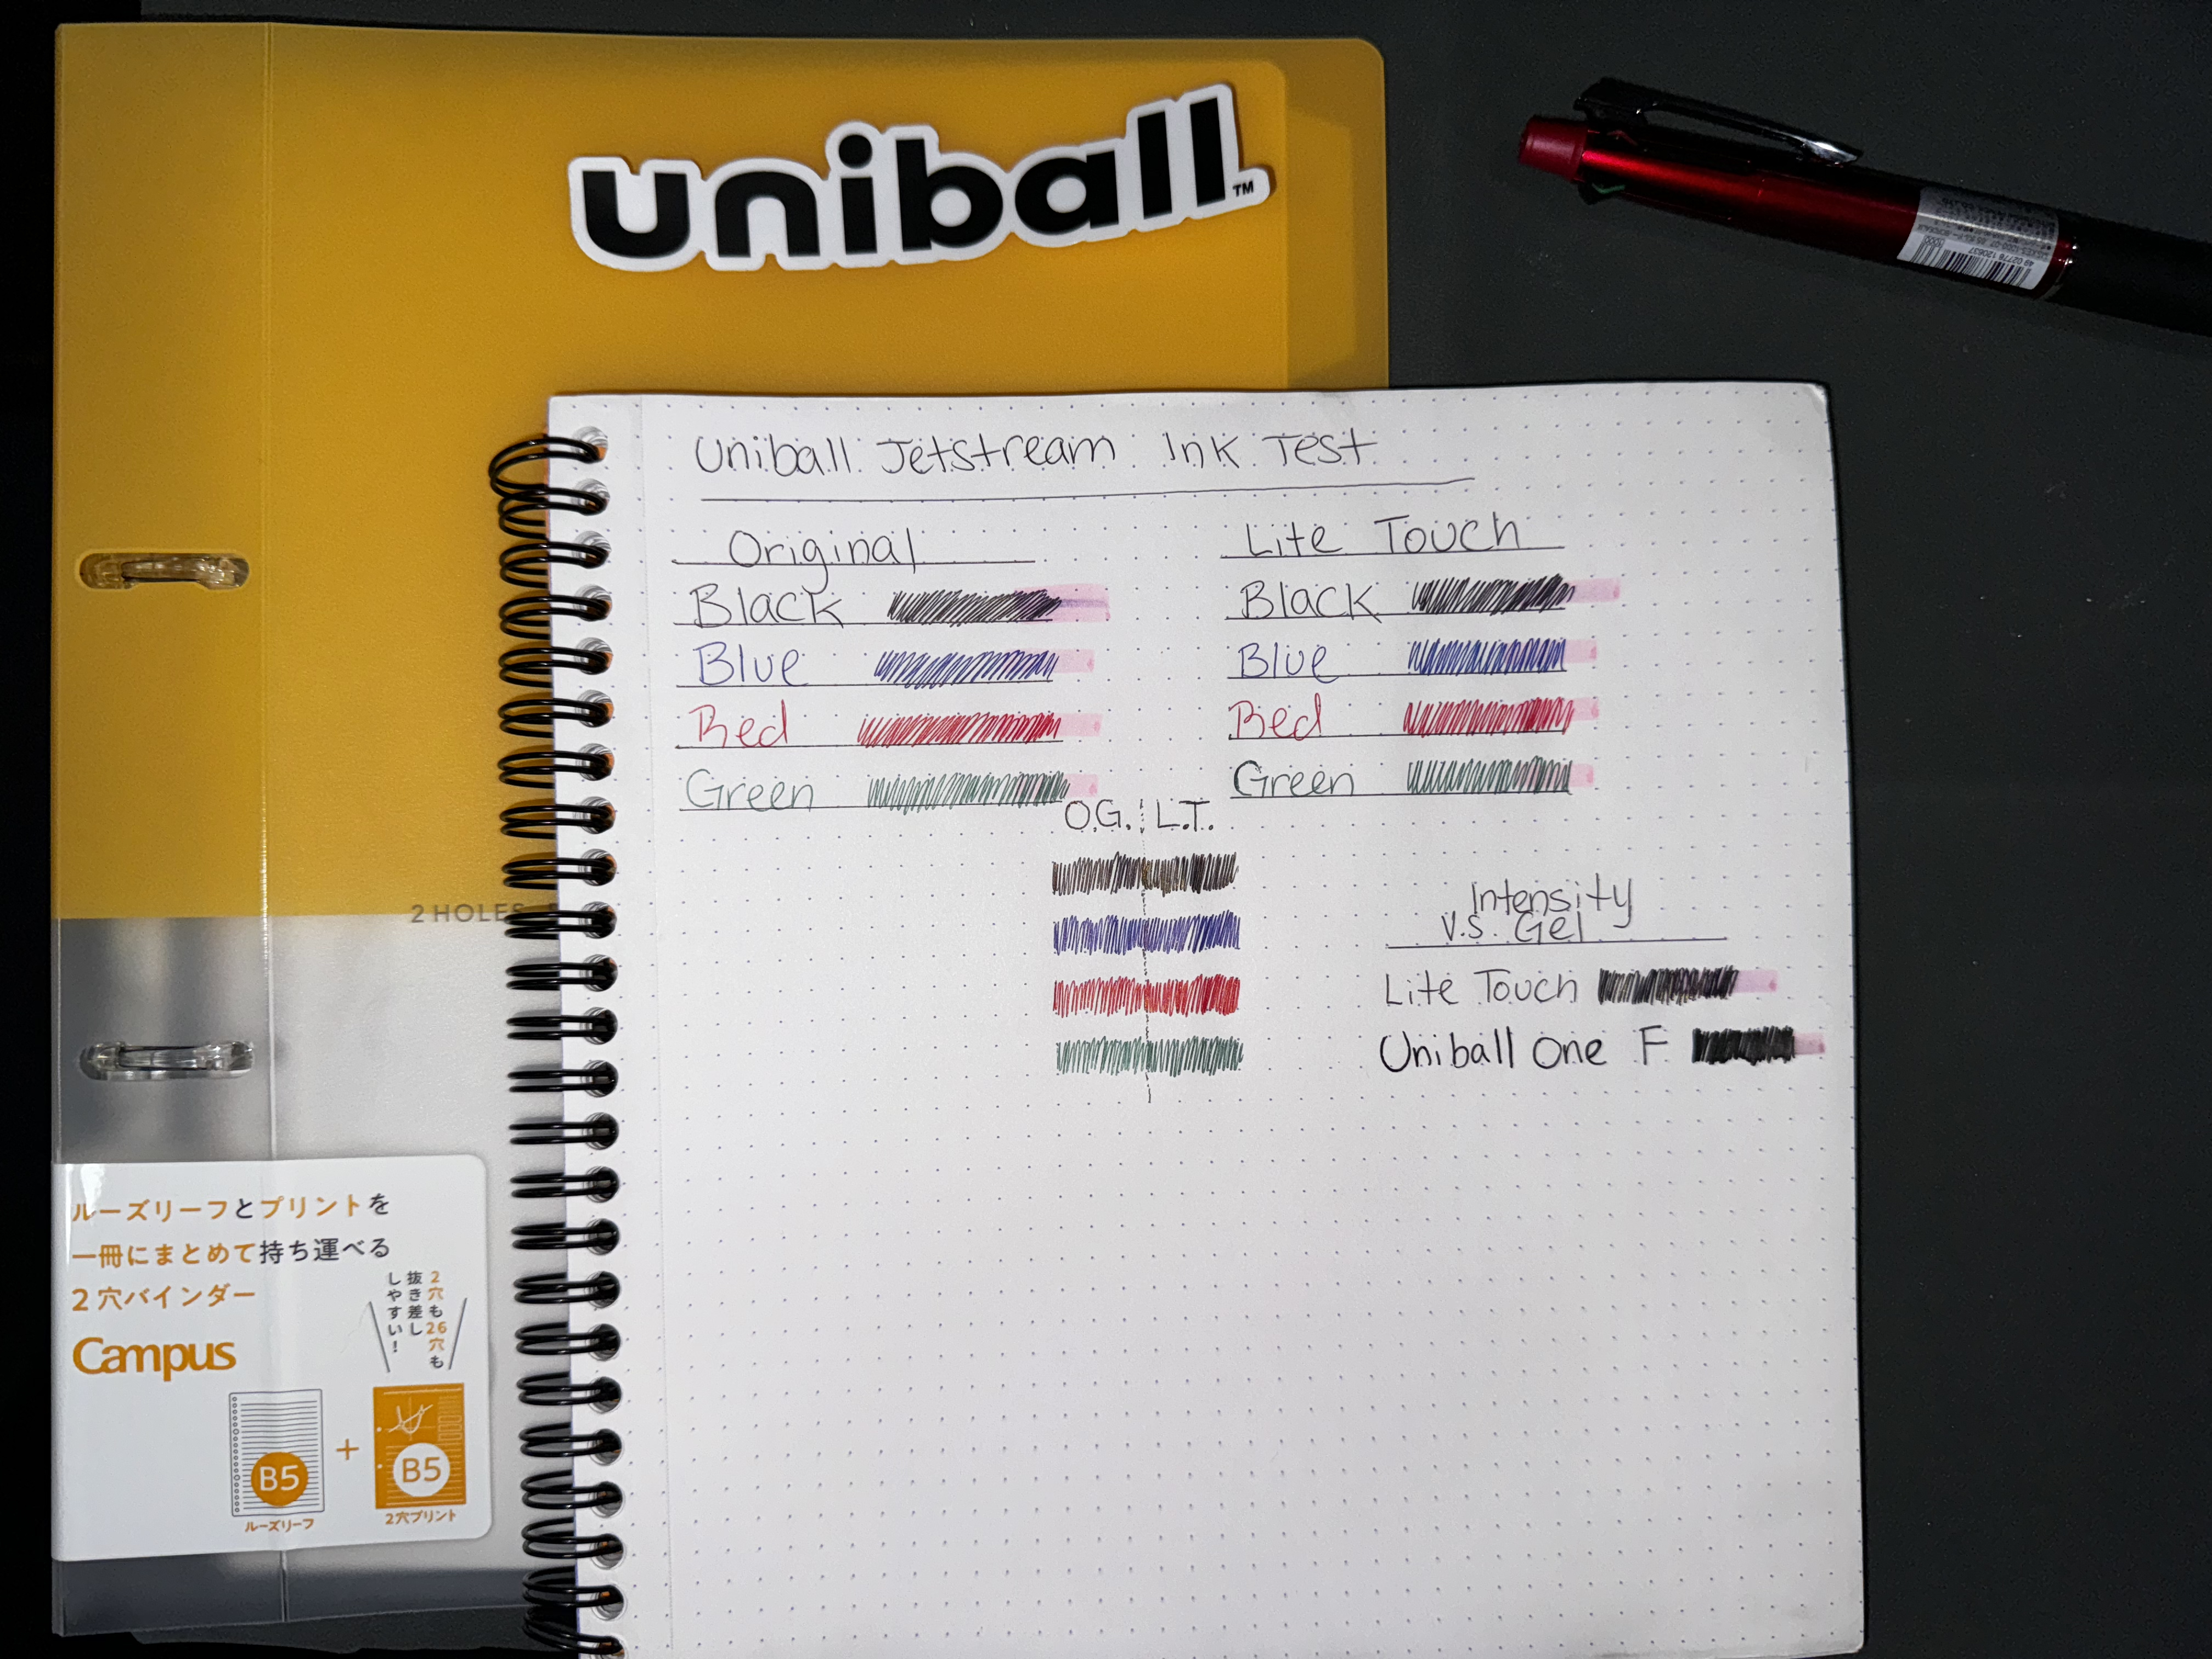 uniball™
Uniball Jetstream Ink Test
Original
Black
Blue
Red
Green
Lite Touch
Black
Blue
Red
Green
O.G. L.T.
Intensity
V.S. Gel
Lite Touch
Uniball One F
2 HOLES
ルーズリーフとプリントを
一冊にまとめて持ち運べる
2穴バインダー
2穴も26穴も
抜き差し
しやすい!
Campus
B5
+
B5
ルーズリーフ
2穴プリント
49 02778 120637